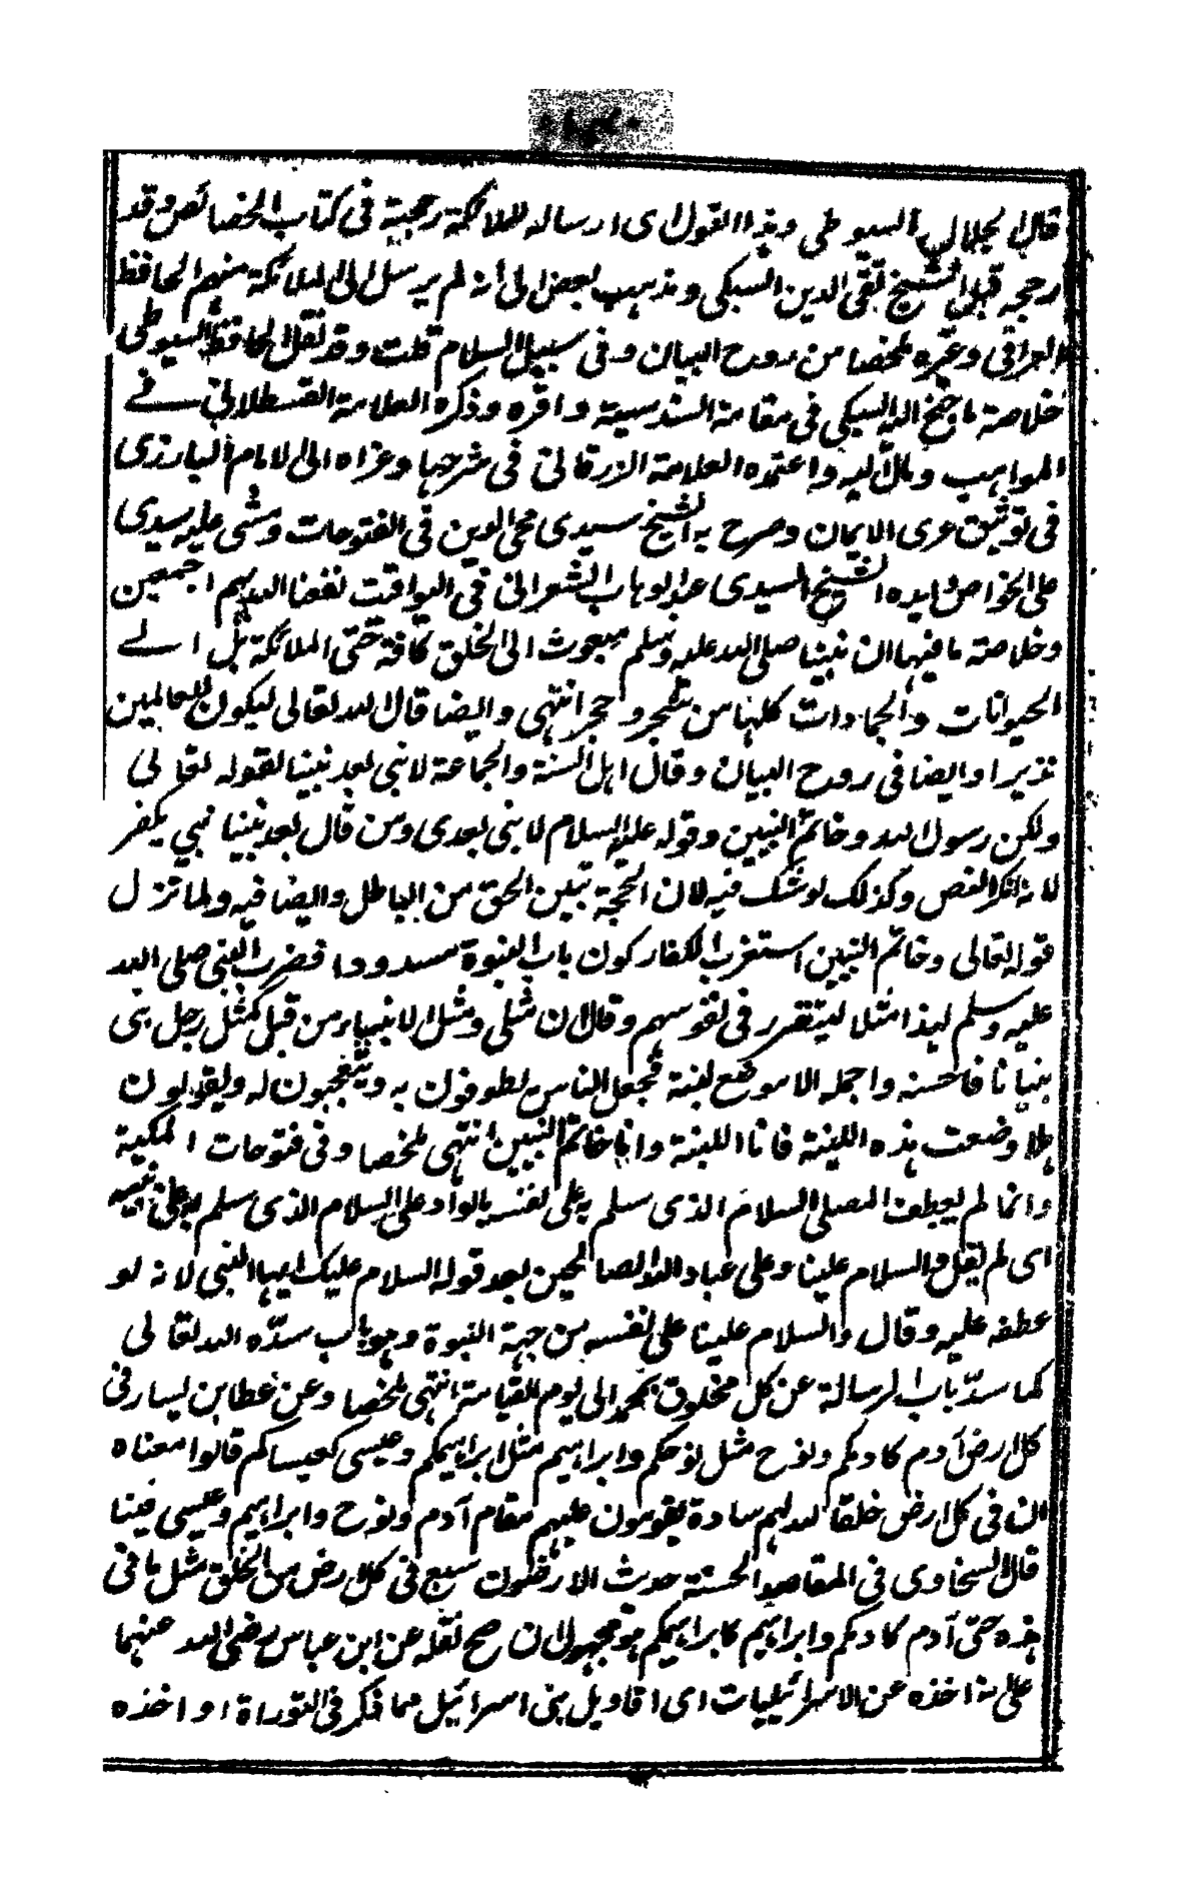 قال الجلال السيوطى وهذا القول اى ارساله للملائكة رجحته فى كتاب الخصائص وقد
رجحه قبلى الشيخ تقى الدين السبكى وذهب بعض الى أنه لم يرسل الى الملائكة منهم الحافظ
العراقى وغيره ملخصا من روح البيان وفى سبيل السلام قلت وقد نقل الحافظ السيوطى
خلاصة ما جنح اليه السبكى فى مقامة السندسية واقره وذكره العلامة القسطلانى فے
المواهب ومال اليه واعتمده العلامة الزرقانى فى شرحها وعزاه الى الامام البارزى
فى توثيق عرى الايمان وصرح به الشيخ سيدى محى الدين فى الفتوحات ومشى عليه سيدى
على الخواص وايده الشيخ السيدى عبد الوهاب الشعرانى فى اليواقت نفعنا الله بهم اجمعين
وخلاصة ما فيها ان نبينا صلى الله عليه وسلم مبعوث الى الخلق كافة حتى الملائكة بل الے
الحيوانات والجمادات كلها من شجر وحجر انتهى وايضا قال الله تعالى ليكون للعالمين
نذيرا وايضا فى روح البيان وقال اهل السنة والجماعة لا نبى بعد نبينا لقوله تعالى
ولكن رسول الله وخاتم النبيين وقوله عليه السلام لا نبى بعدى ومن قال بعد نبينا نبي يكفر
لانه انكر النص وكذلك لو شك فيه لان الحجة تبين الحق من الباطل وايضا فيه ولما نزل
قوله تعالى وخاتم النبيين استغرب الكفار كون باب النبوة مسدودا فضرب النبى صلى الله
عليه وسلم لهذا مثلا ليتقرر فى نفوسهم وقال ان مثلى ومثل الانبياء من قبل كمثل رجل بنى
بنيانا فاحسنه واجمله الا موضع لبنة فجعل الناس يطوفون به ويتعجبون له ويقولون
هلا وضعت هذه اللبنة فانا اللبنة وانا خاتم النبيين انتهى ملخصا وفى فتوحات المكية
وانما لم يعطف المصلى السلام الذى سلم به على نفسه بالواو على السلام الذى سلم به على نبيه
اى لم يقل والسلام علينا وعلى عباد الله الصالحين بعد قوله السلام عليك ايها النبى لانه لو
عطفه عليه وقال والسلام علينا على نفسه من جهة النبوة وهو باب سدّه الله تعالى
كما سدّ باب الرسالة عن كل مخلوق بمحمد الى يوم القيامة انتهى ملخصا وعن عطا بن يسار فى
كل ارض آدم كآدمكم ونوح مثل نوحكم وابراهيم مثل ابراهيمكم وعيسى كعيساكم قالوا معناه
ان فى كل ارض خلقا لله لهم سادة يقومون عليهم مقام آدم ونوح وابراهيم وعيسى فينا
قال السخاوى فى المقاصد الحسنة حديث الارضون سبع فى كل ارض من الخلق مثل ما فى
هذه حتى آدم كآدمكم وابراهيم كابراهيمكم هو مجهول ان صح نقله عن ابن عباس رضى الله عنهما
على انه اخذه عن الاسرائيليات اى اقاويل بنى اسرائيل مما ذكر فى التوراة او اخذه